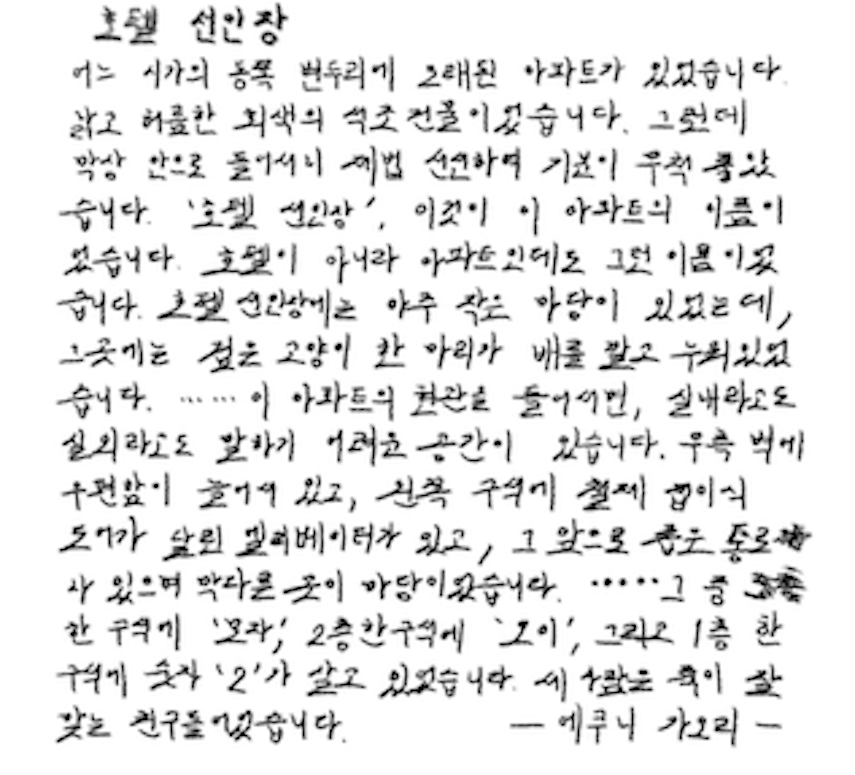 호텔 선인장
어느 시가의 동쪽 변두리에 오래된 아파트가 있었습니다.
낡고 허름한 회색의 석조건물이었습니다. 그런데
막상 안으로 들어서니 제법 선선하여 기분이 무척 좋았
습니다. '호텔 선인장', 이것이 이 아파트의 이름이
었습니다. 호텔이 아니라 아파트인데도 그런 이름이었
습니다. 호텔 선인장에는 아주 작은 마당이 있었는데,
그곳에는 젊은 고양이 한 마리가 배를 깔고 누워있었
습니다. ……이 아파트의 현관을 들어서면, 실내라고도
실외라고도 말하기 어려운 공간이 있습니다. 우측 벽에
우편함이 늘어서 있고, 왼쪽 구석에 철제 접이식
도어가 달린 엘리베이터가 있고, 그 앞으로 좁은 통로
가 있으며 막다른 곳이 마당이었습니다. ……그 중
한 구석에 '모자', 2층한구석에 '오이', 그리고 1층 한
구석에 숫자 '2'가 살고 있었습니다. 세 사람은 죽이 잘
맞는 친구들이었습니다. — 에쿠니 가오리 —